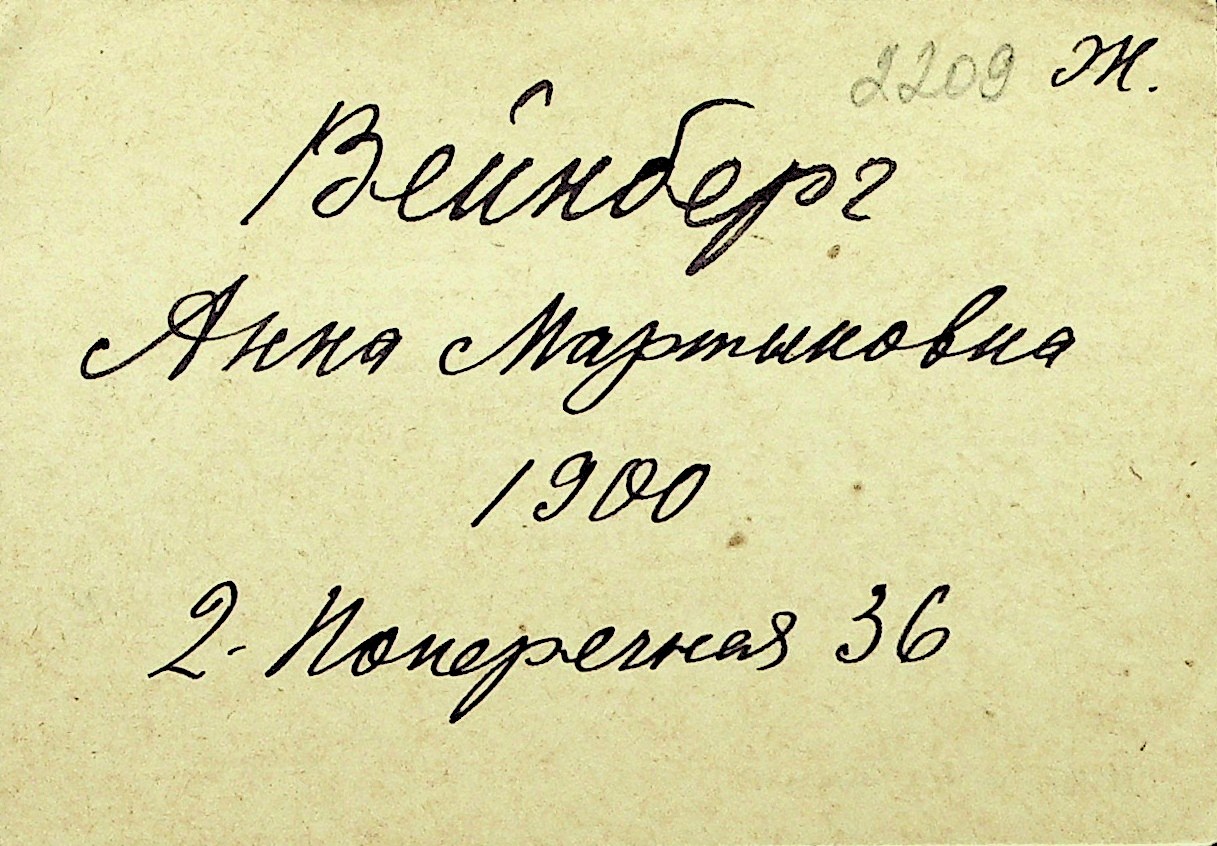 2209 Ж.
Вейнберг
Анна Мартыновна
1900
2-Поперечная 36